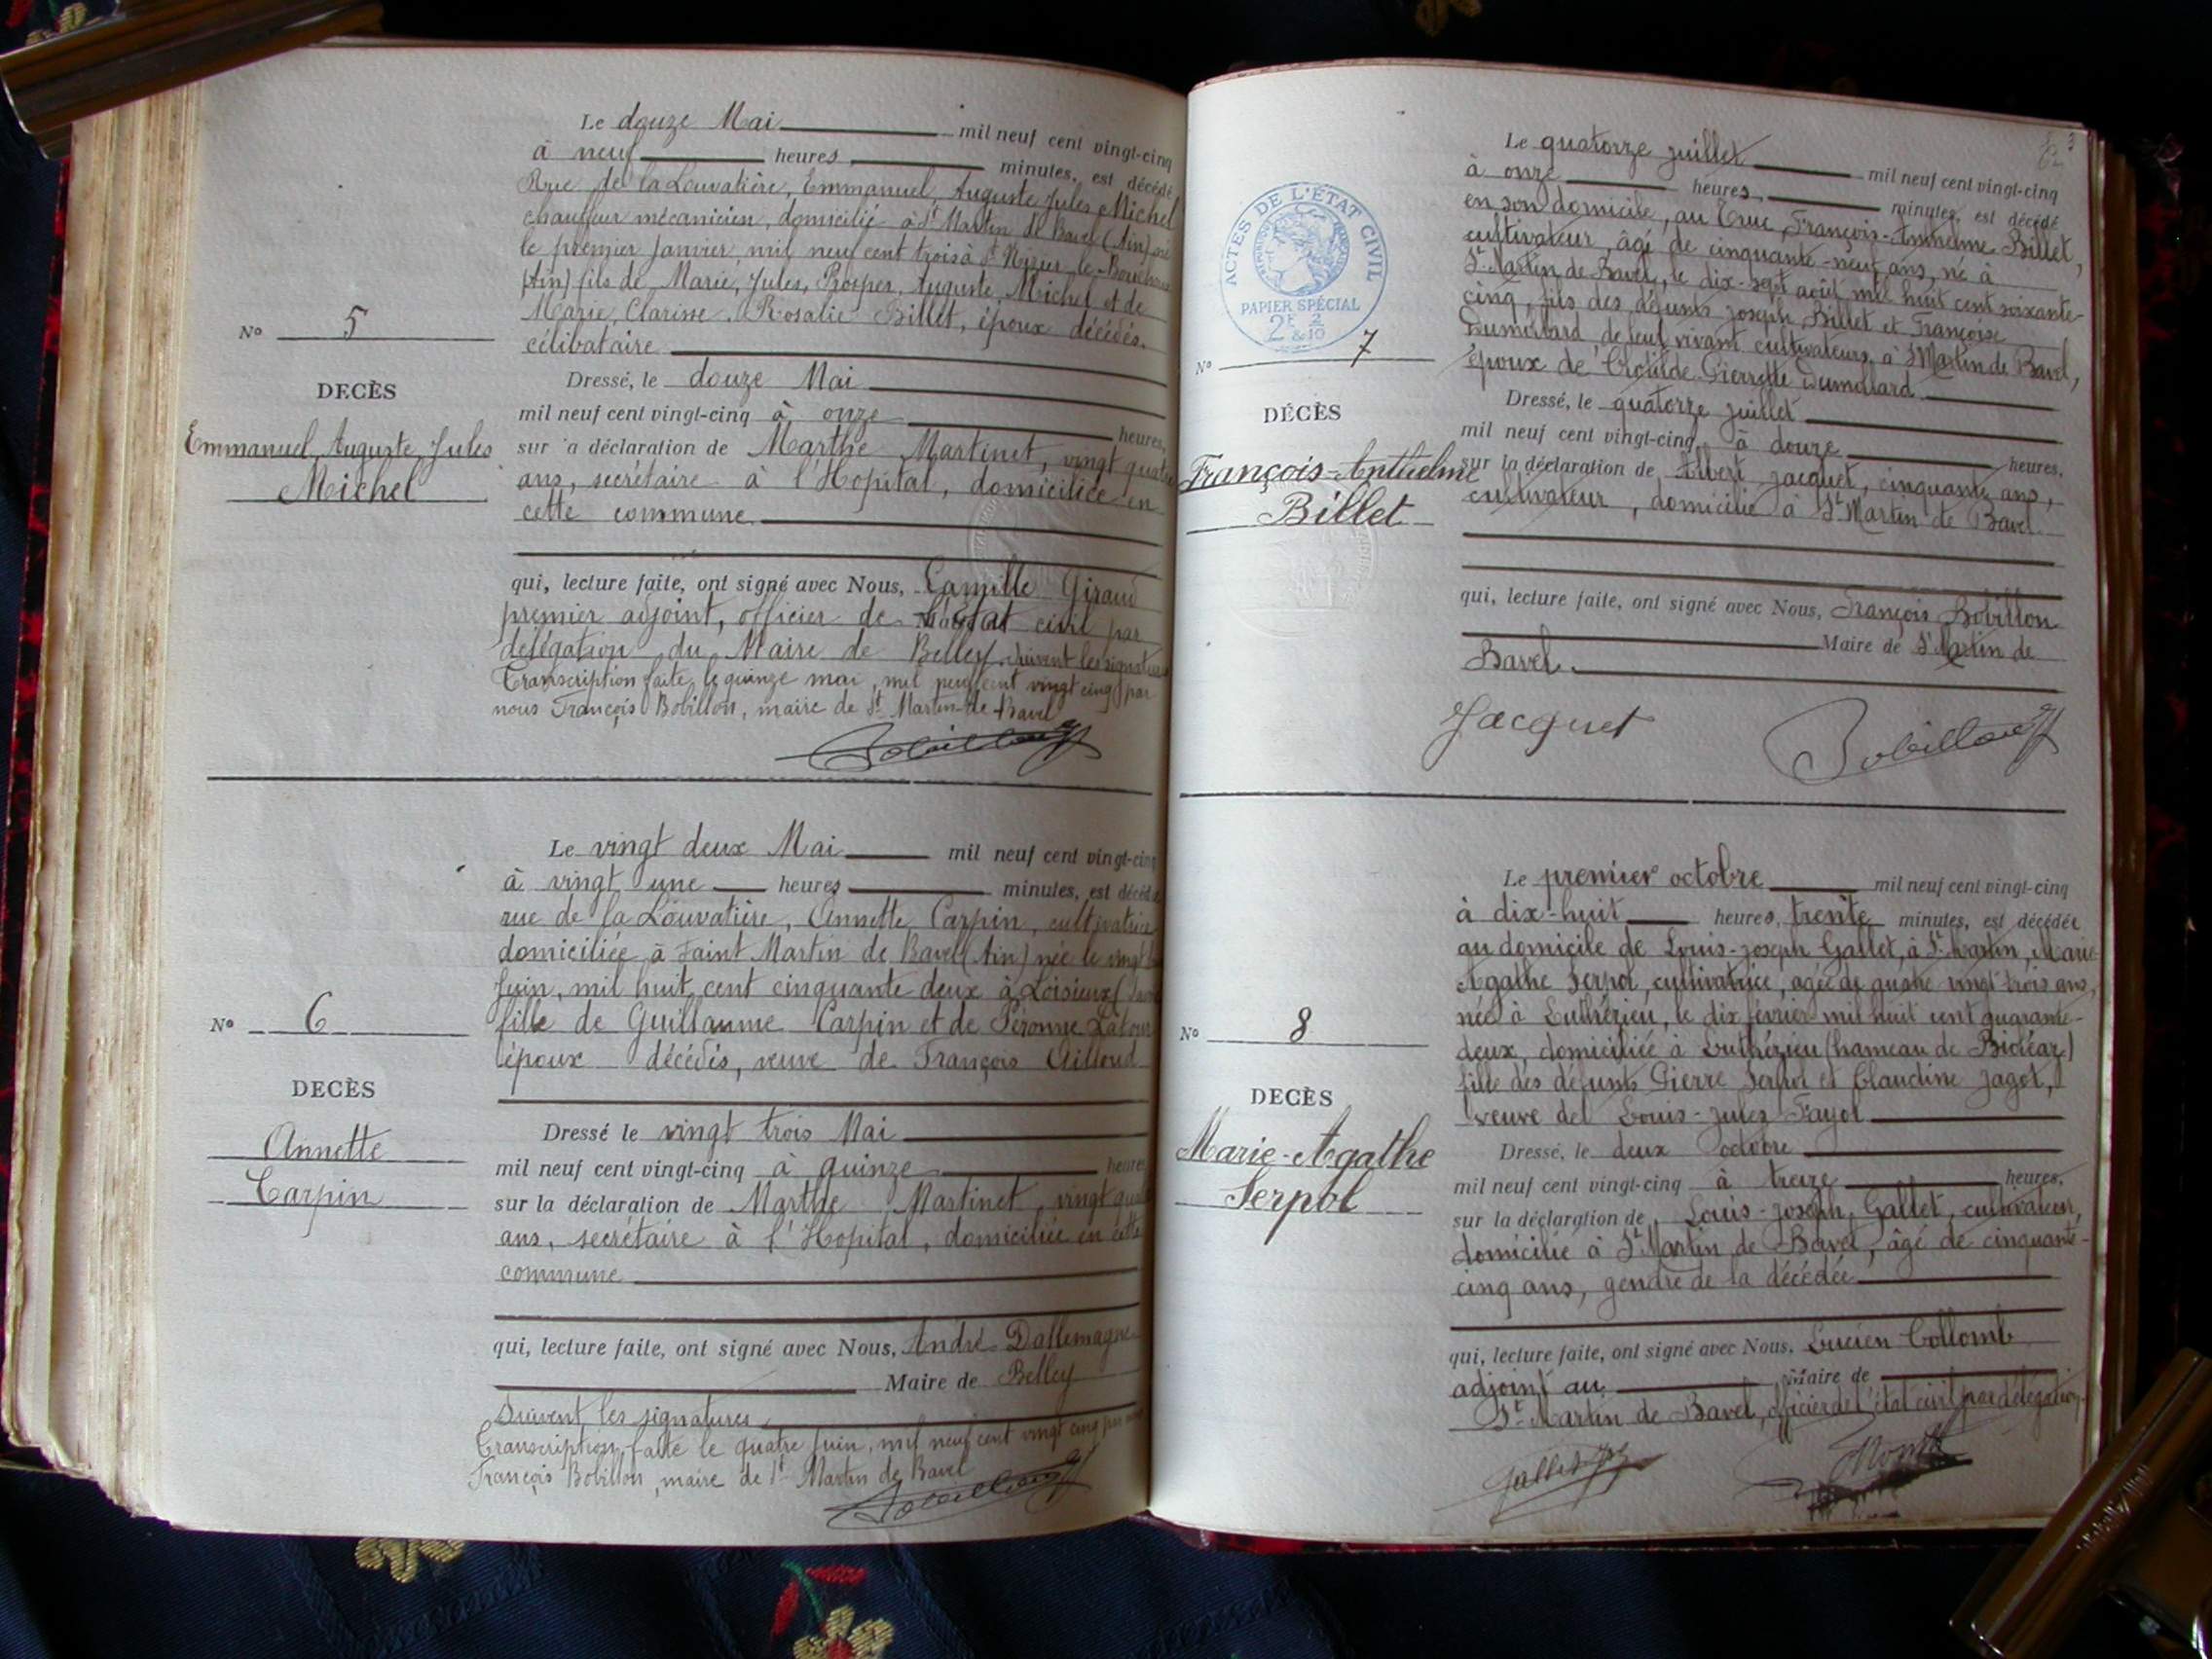 Le douze Mai mil neuf cent vingt-cinq
à neuf heures minutes, est décédé
Rue de la Louvatière, Emmanuel, Auguste Jules Michel
chauffeur mécanicien, domicilié à St Martin de Bavel (Ain) né
le premier Janvier, mil neuf cent trois à St Nizier-le-Bouchoux
(Ain) fils de Marie, Jules, Prosper, Auguste, Michel et de
Marie, Clarisse, Rosalie Billet, époux décédés.
célibataire
Nº 5
DECÈS
Emmanuel, Auguste, Jules
Michel
Dressé, le douze Mai
mil neuf cent vingt-cinq à onze heures,
sur la déclaration de Marthe Martinet, vingt quatre
ans, secrétaire à l'Hopital, domiciliée en
cette commune
qui, lecture faite, ont signé avec Nous, Camille Giraud
premier adjoint, officier de l'état civil par
délégation du Maire de Belley. Suivent les signatures
Transcription faite, le quinze mai, mil neuf cent vingt cinq par
nous François Bobillon, maire de St Martin-de Bavel
Bobillon
Le vingt deux Mai mil neuf cent vingt-cinq
à vingt une heures minutes, est décédée
rue de la Louvatière, Annette Carpin, cultivatrice
domiciliée à Saint Martin de Bavel (Ain) née le vingt
Juin, mil huit cent cinquante deux à Loisieux (
fille de Guillaume Carpin et de Péronne Latour
époux décédés, veuve de François Gilloud
Nº 6
DECÈS
Annette
Carpin
Dressé le vingt trois Mai
mil neuf cent vingt-cinq à quinze heures
sur la déclaration de Marthe Martinet, vingt quatre
ans, secrétaire à l'Hopital, domiciliée en cette
commune
qui, lecture faite, ont signé avec Nous, André Dallemagne
Maire de Belley
Suivent les signatures
Transcription faite le quatre Juin, mil neuf cent vingt cinq par nous
François Bobillon, maire de St Martin de Bavel
Bobillon
Le quatorze juillet mil neuf cent vingt-cinq
à onze heures, minutes, est décédé
en son domicile, au Truc, François-Anthelme Billet,
cultivateur, âgé de cinquante-neuf ans, né à
St Martin de Bavel, le dix-sept août mil huit cent soixante-
cinq, fils des défunts Joseph Billet et Françoise
Dumollard de leur vivant cultivateurs à St Martin de Bavel,
époux de Clotilde-Pierrette Dumollard
ACTES DE L'ÉTAT CIVIL
PAPIER SPÉCIAL
2F 2/10
Nº 7
DÉCÈS
François-Anthelme
Billet
Dressé, le quatorze juillet
mil neuf cent vingt-cinq, à douze heures,
sur la déclaration de Albert Jacquet, cinquante ans,
cultivateur, domicilié à St Martin de Bavel.
qui, lecture faite, ont signé avec Nous, François Bobillon
Maire de St Martin de
Bavel.
Jacquet Bobillon
Le premier octobre mil neuf cent vingt-cinq
à dix-huit heures, trente minutes, est décédée
au domicile de Louis-Joseph Gallet, à St Martin, Marie-
Agathe Serpol, cultivatrice, agée de quatre vingt trois ans,
née à Luthézieu, le dix février mil huit cent quarante-
deux, domiciliée à Luthézieu (hameau de Bioléaz)
fille des défunts Pierre Serpol et Claudine Jagot,
veuve de Louis-Jules Fayol
Nº 8
DECÈS
Marie-Agathe
Serpol
Dressé, le deux octobre
mil neuf cent vingt-cinq à treize heures,
sur la déclaration de Louis-Joseph Gallet, cultivateur,
domicilié à St Martin de Bavel, âgé de cinquante-
cinq ans, gendre de la décédée
qui, lecture faite, ont signé avec Nous, Lucien Collomb
adjoint au Maire de
St Martin de Bavel, officier de l'état civil par délégation.
Gallet